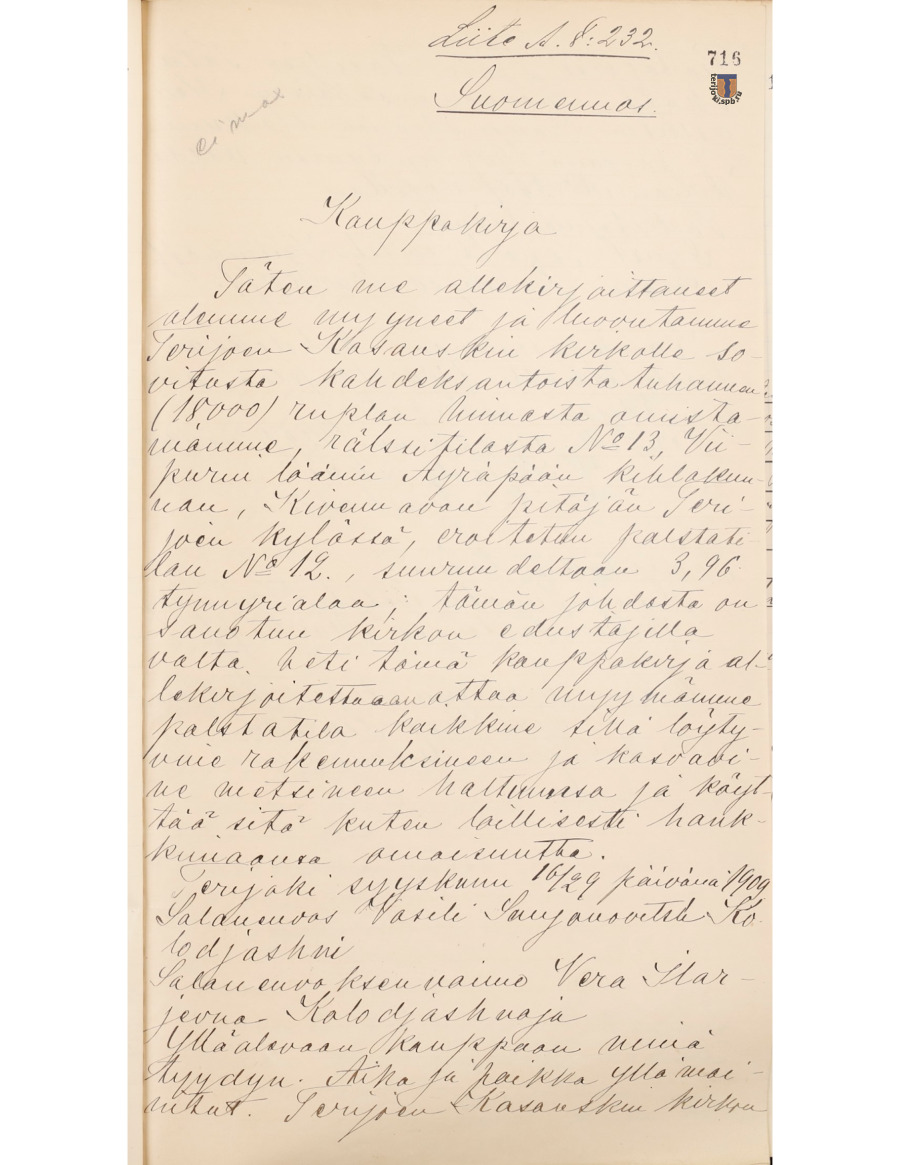 Liite A. §: 232.
716
terijoki.spb.ru
Suomennos.
ei maa
Kauppakirja
Täten me allekirjoittaneet
olemme myyneet ja luovutamme
Terijoen Kasanskin kirkolle so-
vitusta kahdeksantoistatuhannen
(18000) ruplan hinnasta omista-
mamme, rälssitilasta No 13, Vii-
purin läänin Äyräpään kihlakun-
nan, Kivennavan pitäjän Teri-
joen kylässä, eroitetun palstati-
lan No 12., suuruudeltaan 3,96
tynnyrialaa; tämän johdosta on
sanotun kirkon edustajilla
valta heti tämä kauppakirja al-
lekirjoitettuaan ottaa myymämme
palstatila kaikkine sillä löyty-
vine rakennuksineen ja kasvavi-
ne metsineen haltuunsa ja käyt-
tää sitä kuten laillisesti hank-
kimaansa omaisuutta.
Terijoki syyskuun 16/29 päivänä 1909
Salaneuvos Vasili Ko-
lodjashni
Salaneuvoksen vaimo Vera Ilar-
jevna Kolodjashnaja
Ylläolevaan kauppaan minä
tyydyn. Aika ja paikka yllä mai-
nitut. Terijoen Kasanskin kirkon